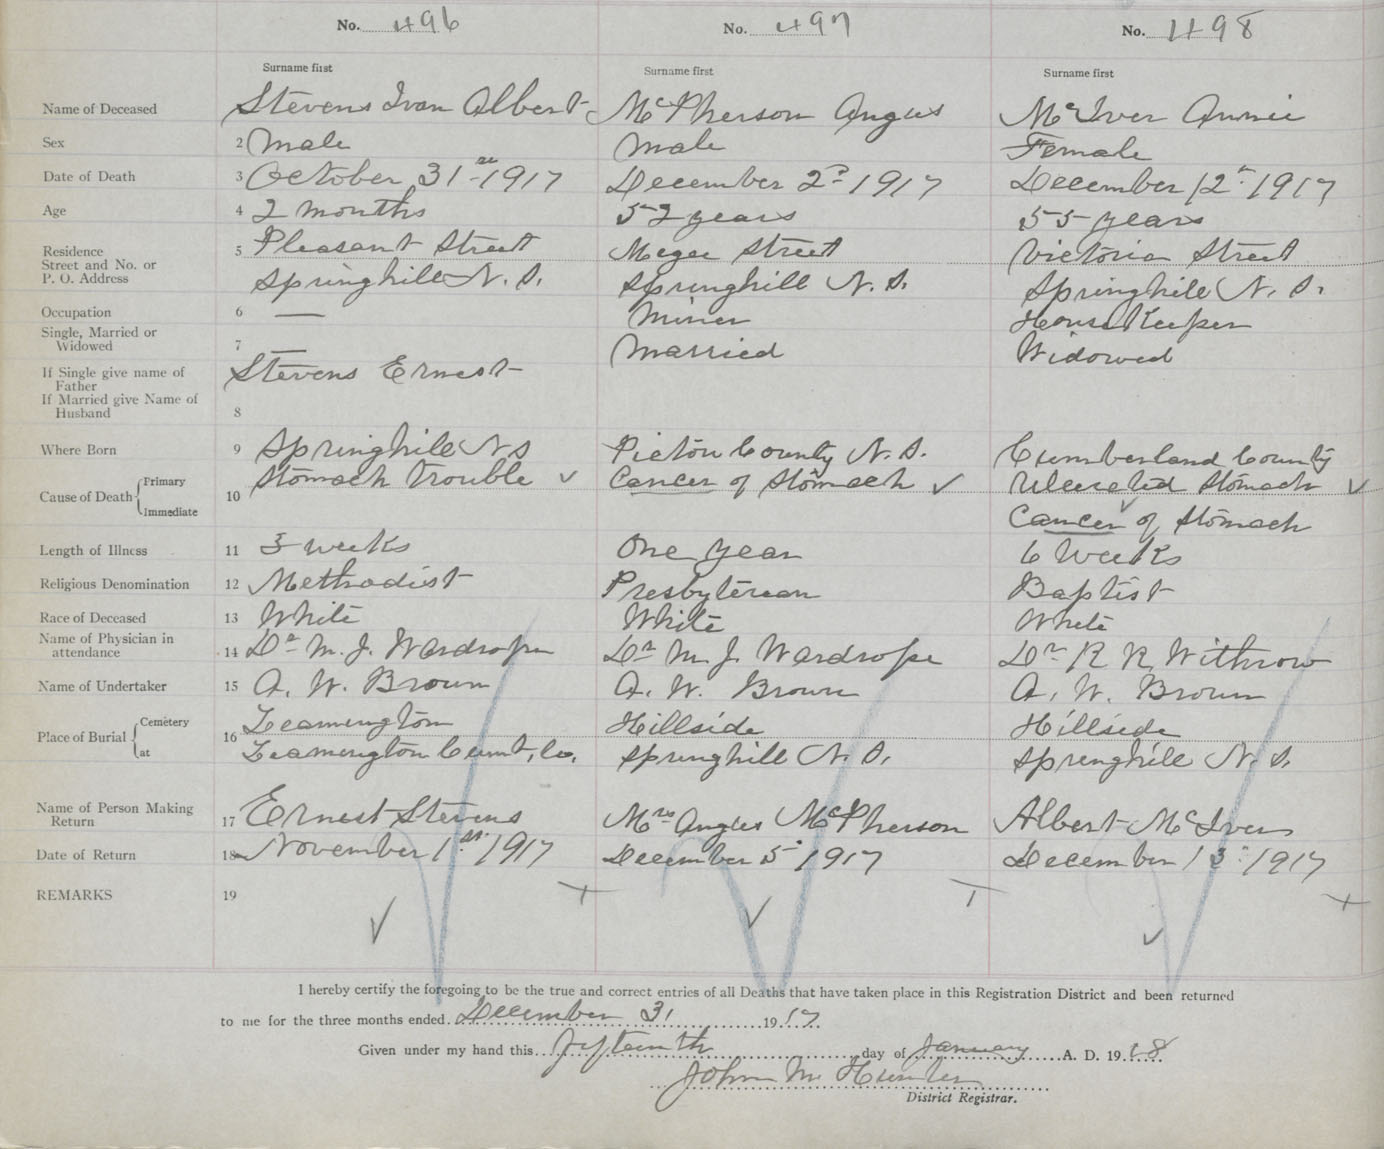 No. 496 No. 497 No. 498
Surname first Surname first Surname first
Name of Deceased Stevens Ivan Albert McPherson Angus McIver Annie
Sex 2 Male Male Female
Date of Death 3 October 31st 1917 December 2nd 1917 December 12th 1917
Age 4 2 months 52 years 55 years
Residence 5 Pleasant Street Street Victoria Street
Street and No. or
P. O. Address Springhill N. S. Springhill N. S. Springhill N. S.
Occupation 6 — Miner House Keeper
Single, Married or
Widowed 7 — Married Widowed
If Single give name of Stevens Ernest
Father
If Married give Name of
Husband 8
Where Born 9 Springhill N S Pictou County N. S. Cumberland County
Cause of Death Primary 10 Stomach Trouble Cancer of Stomach Ulcerated Stomach
Immediate Cancer of Stomach
Length of Illness 11 3 weeks One year 6 Weeks
Religious Denomination 12 Methodist Presbyterian Baptist
Race of Deceased 13 White White White
Name of Physician in
attendance 14 Dr M. J. Wardrope Dr M. J. Wardrope Dr R R Withrow
Name of Undertaker 15 A. W. Brown A. W. Brown A. W. Brown
Place of Burial Cemetery 16 Leamington Hillside Hillside
at Leamington Cumt, Co. Springhill N. S. Springhill N. S.
Name of Person Making
Return 17 Ernest Stevens Mrs Angus McPherson Albert McIver
Date of Return 18 November 1st 1917 December 5th 1917 December 13th 1917
REMARKS 19
I hereby certify the foregoing to be the true and correct entries of all Deaths that have taken place in this Registration District and been returned
to me for the three months ended December 31 1917
Given under my hand this fifteenth day of January A. D. 1918
John M Hunter
District Registrar.